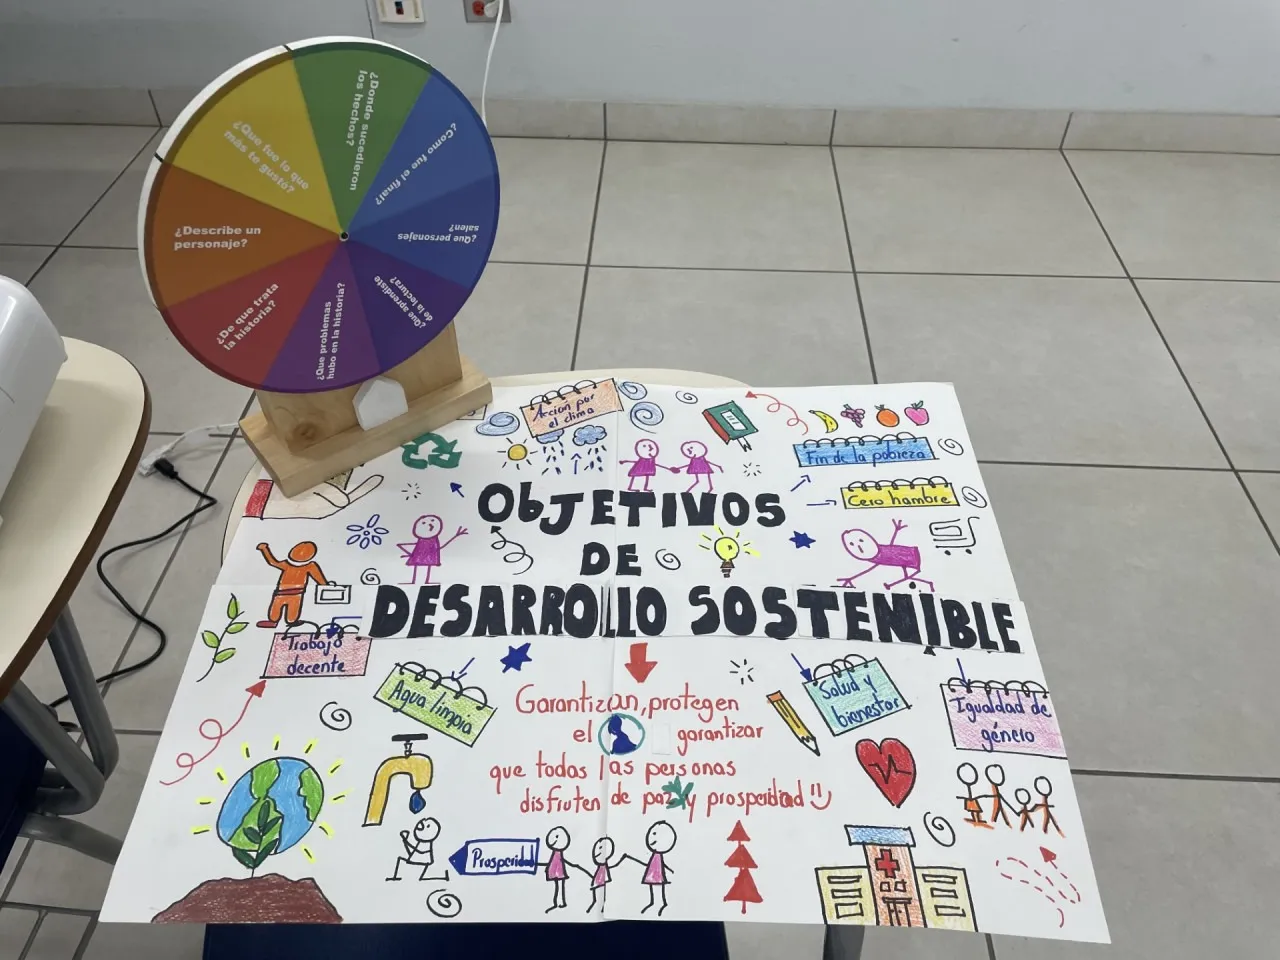 ¿Donde sucedieron
los hechos?
¿Como fue el final?
¿Que personajes
salen?
¿Que aprendiste
de la lectura?
¿Que problemas
hubo en la historia?
¿De que trata
la historia?
¿Describe un
personaje?
¿Que fue lo que
más te gustó?
Acción por
el clima
Fin de la pobreza
Cero hambre
OBJETIVOS
DE
DESARROLLO SOSTENIBLE
Trabajo
decente
Agua limpia
Salud y
bienestar
Igualdad de
género
Garantizan, protegen
el garantizar
que todas las personas
disfruten de paz y prosperidad
Prosperidad